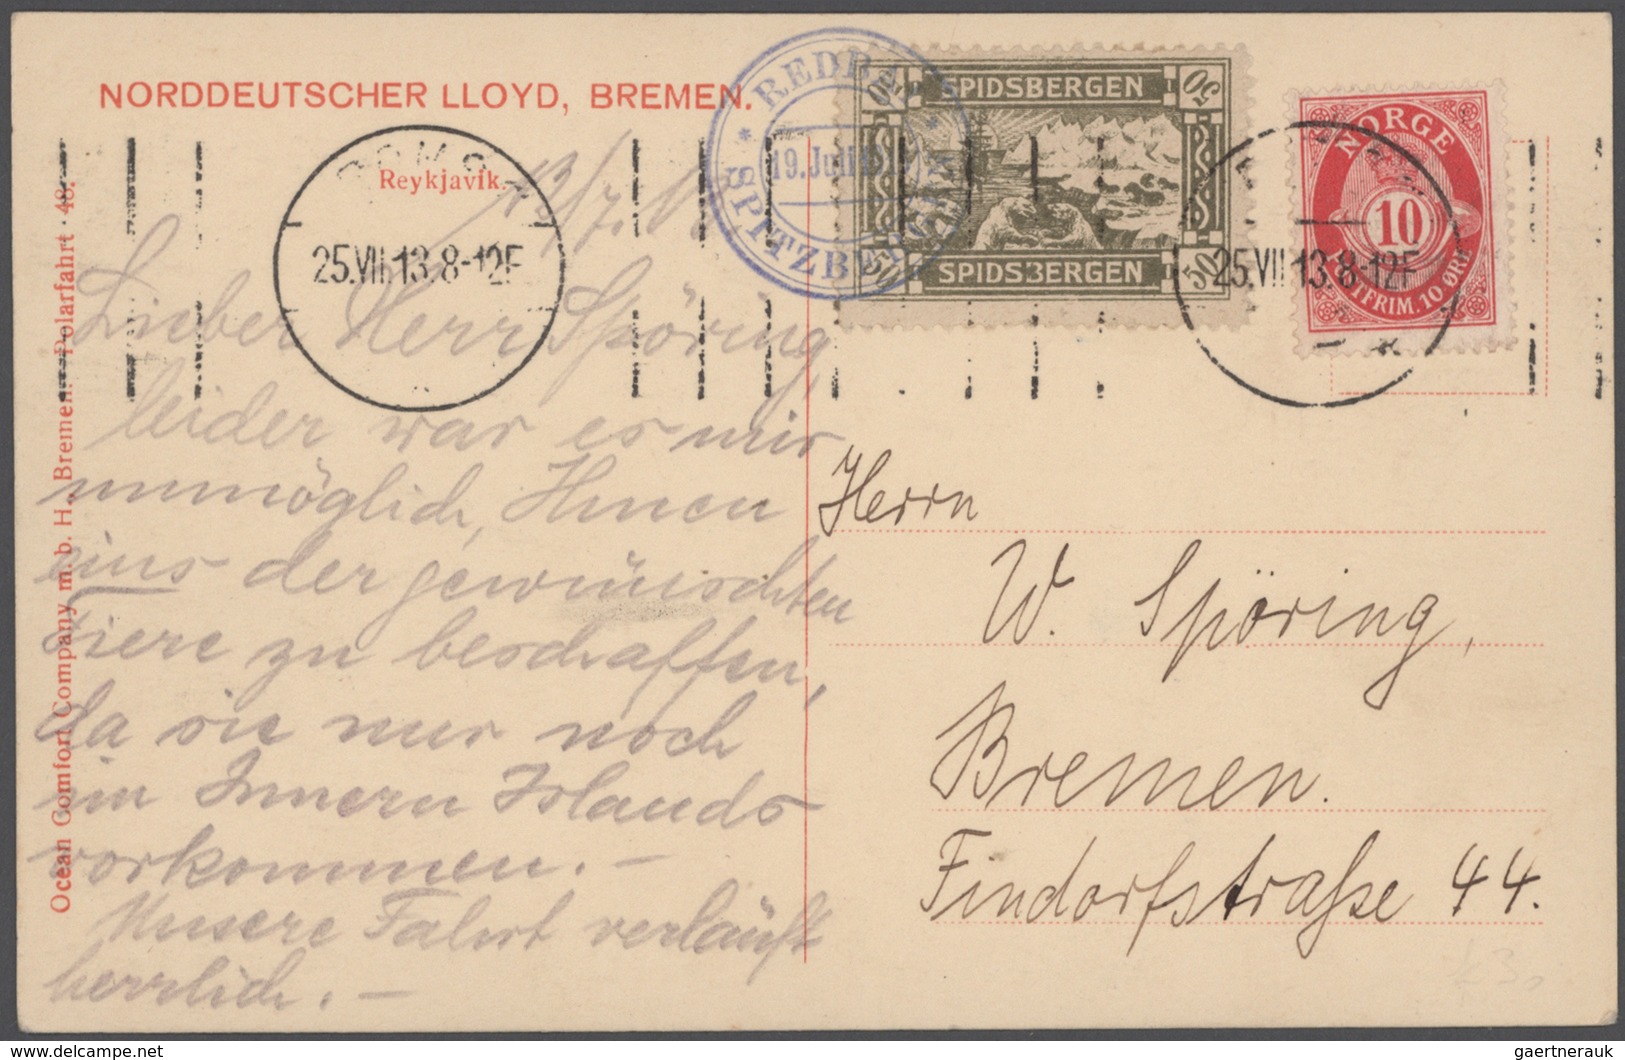 NORDDEUTSCHER LLOYD, BREMEN.
Reykjavik.
Ocean Comfort Company m. b. H., Bremen. Polarfahrt 48.
25.VII.13.8-12F
* REDBA *
19. Juli 13
SPITZBERGEN
50 SPIDSBERGEN 50
50 SPIDSBERGEN 50
NORGE
10
FRIM. 10 ØRE
25.VII.13.8-12F
Lieber Herr Spöring,
leider war es mir
unmöglich, Ihnen
eins der gewünschten
Tiere zu beschaffen,
da sie nur noch
im Innern Islands
vorkommen. –
Unsere Fahrt verläuft
herrlich. –
Herrn
W. Spöring,
Bremen.
Findorfstraße 44.
gaertnerauk